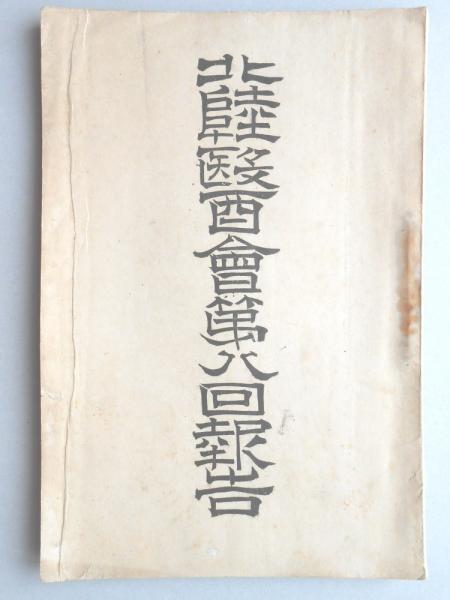 北陸醫會第八回報告